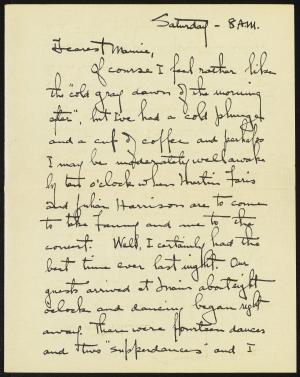 Saturday - 8 A.M.
Dearest Mamie,
Of course I feel rather like
the "cold gray dawn of the morning
after", but I've had a cold plunge
and a cup of coffee and perhaps
I may be moderately well awake
by ten o'clock when Faris
and Harrison are to come
to take Fanny and me to the
concert. Well, I certainly had the
best time ever last night. Our
guests arrived at about eight
o'clock and dancing began right
away. There were fourteen dances
and two "supperdances" and I